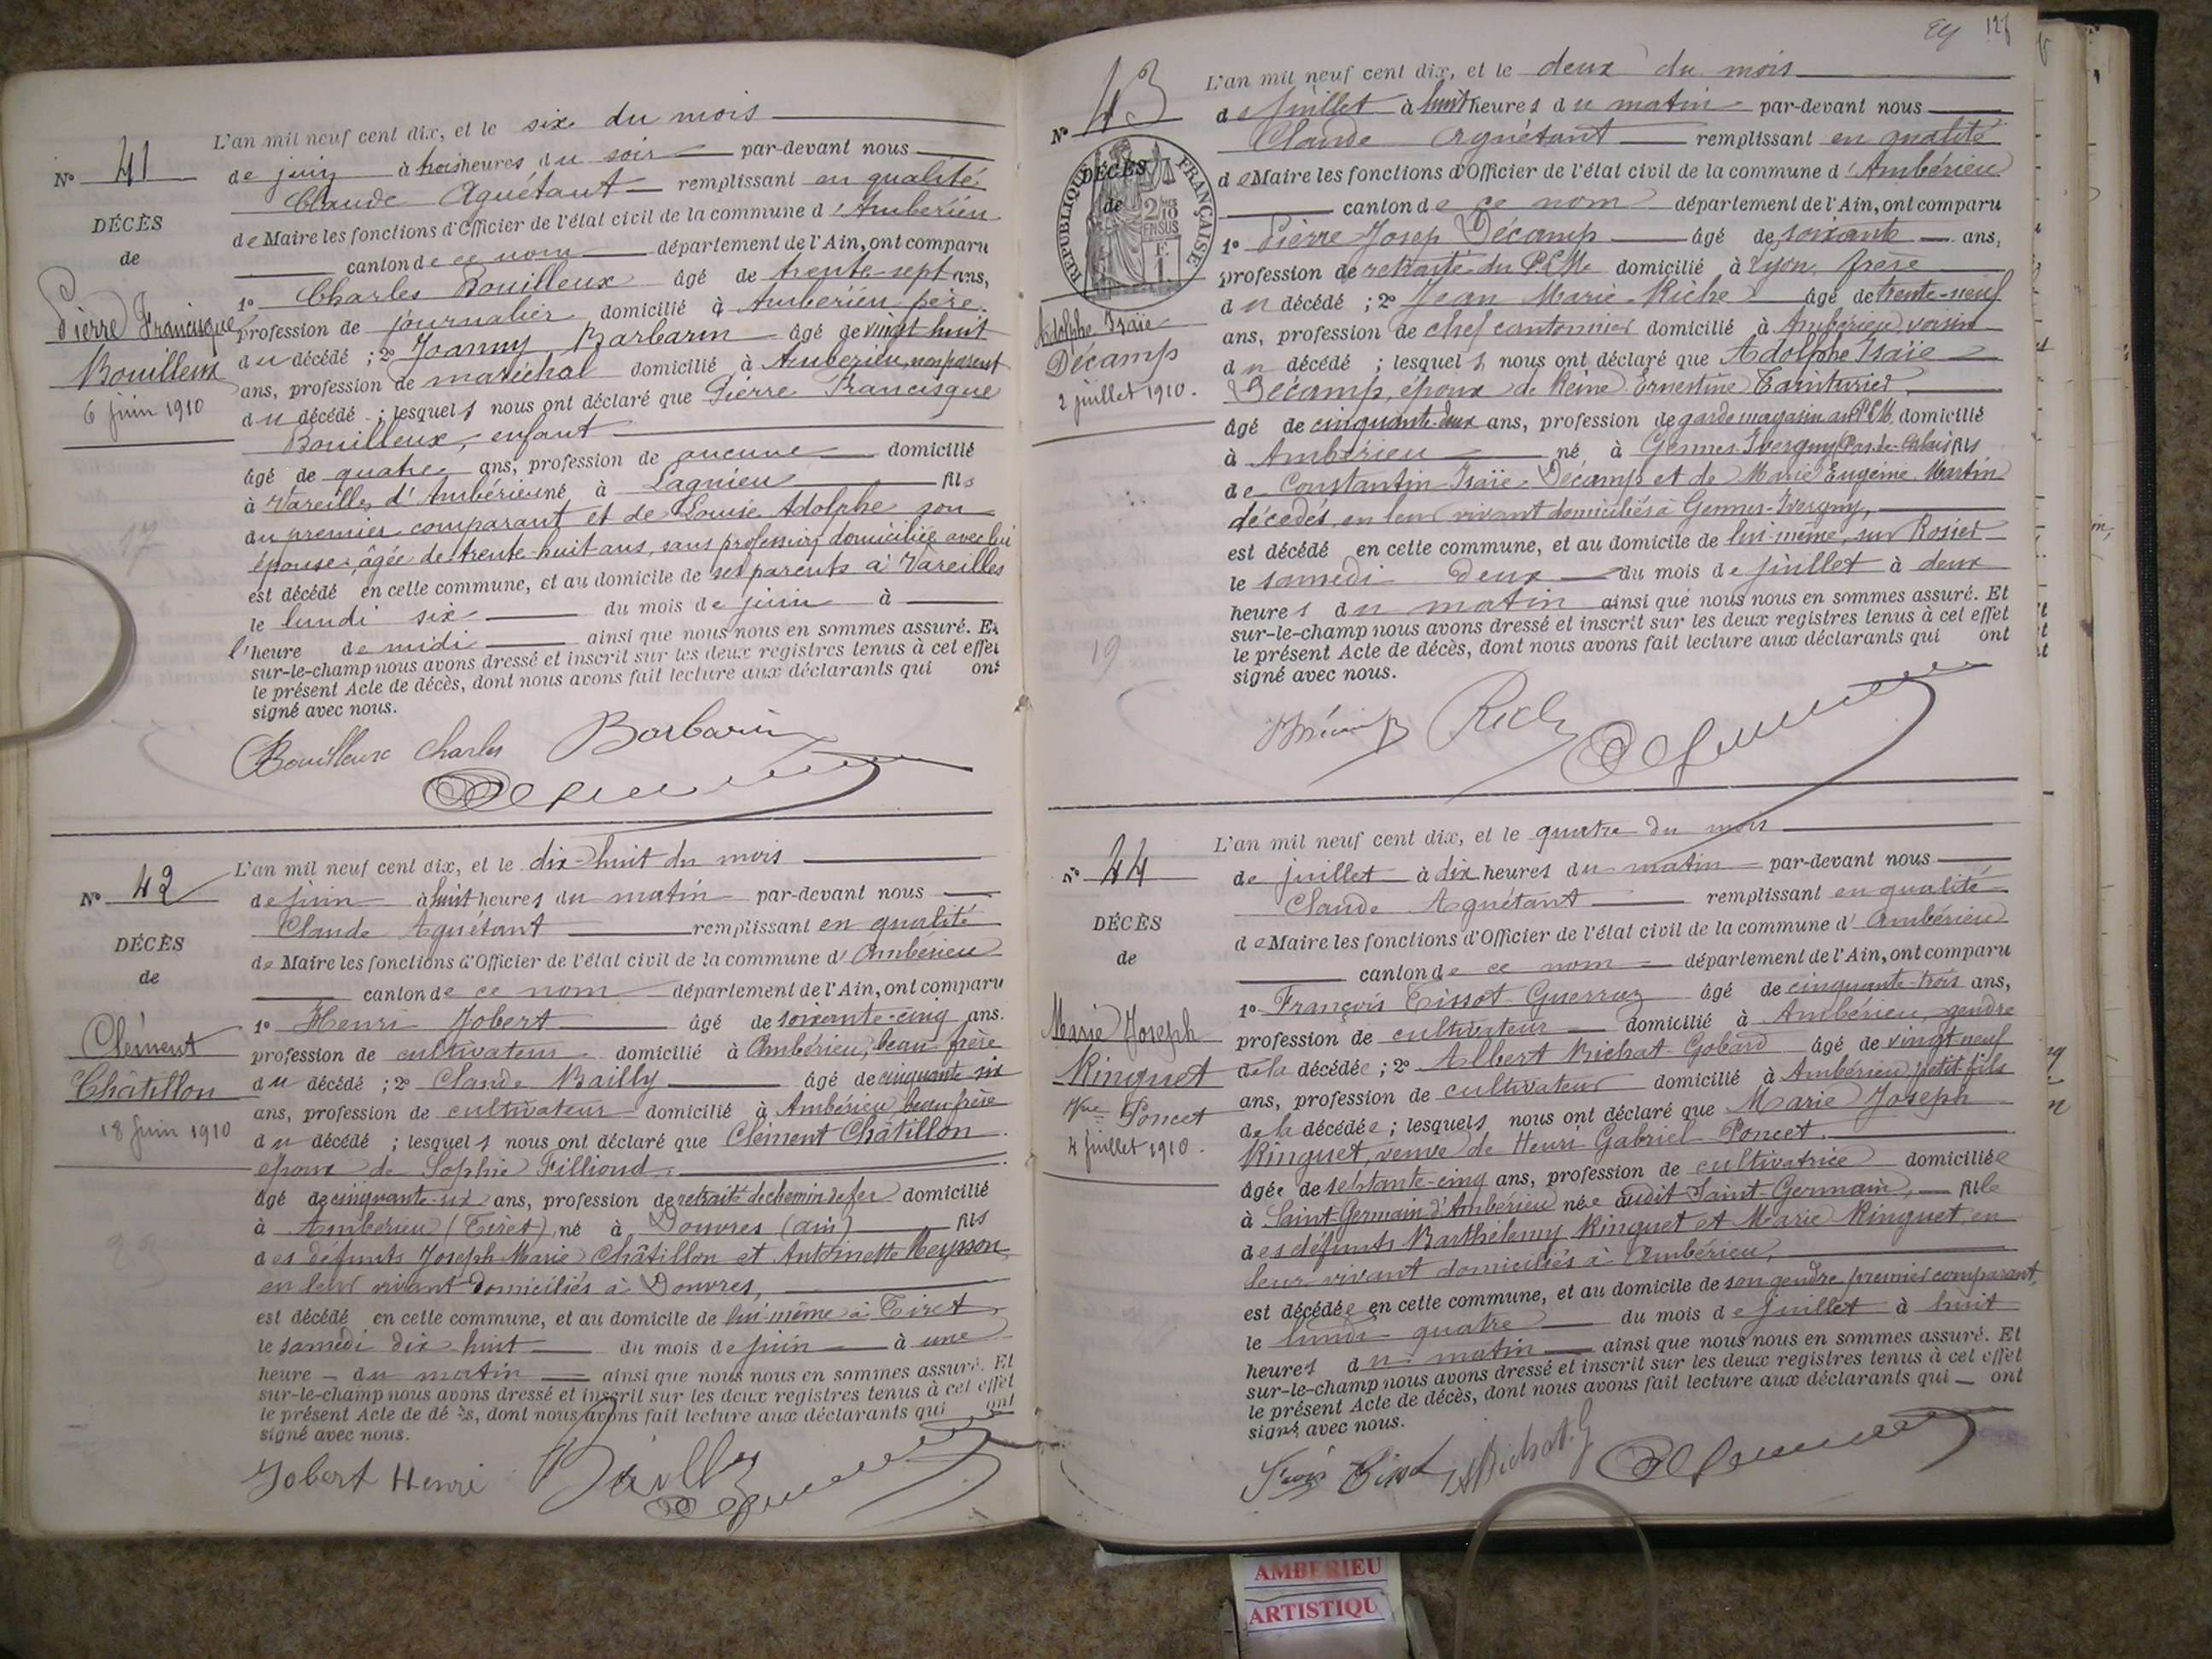 N° 41
DÉCÈS
de
Pierre Francisque
Bouilleux
6 juin 1910
L'an mil neuf cent dix, et le six du mois
de juin à trois heures du soir par-devant nous
Claude Aguétant remplissant en qualité
de Maire les fonctions d'Officier de l'état civil de la commune d'Ambérieu
canton de ce nom département de l'Ain, ont comparu
1° Charles Bouilleux âgé de trente-sept ans,
profession de journalier domicilié à Ambérieu, père
du décédé ; 2° Joanny Barbarin âgé de vingt huit
ans, profession de maréchal domicilié à Ambérieu, non parent
du décédé ; lesquels nous ont déclaré que Pierre Francisque
Bouilleux, enfant
âgé de quatre ans, profession de aucune domicilié
à Vareilles d'Ambérieu né à Lagnieu fils
du premier comparant et de Louise Adolphe son
épouse, âgée de trente-huit ans, sans profession domiciliée avec lui
est décédé en cette commune, et au domicile de ses parents à Vareilles
le lundi six du mois de juin à
l'heure de midi ainsi que nous nous en sommes assuré. Et
sur-le-champ nous avons dressé et inscrit sur les deux registres tenus à cet effet
le présent Acte de décès, dont nous avons fait lecture aux déclarants qui ont
signé avec nous.
Bouilleux Charles Barbarin
N° 42
DÉCÈS
de
Clément
Châtillon
18 juin 1910
L'an mil neuf cent dix, et le dix-huit du mois
de juin à huit heures du matin par-devant nous
Claude Aguétant remplissant en qualité
de Maire les fonctions d'Officier de l'état civil de la commune d'Ambérieu
canton de ce nom département de l'Ain, ont comparu
1° Henri Jobert âgé de soixante-cinq ans.
profession de cultivateur domicilié à Ambérieu, beau-frère
du décédé ; 2° Claude Bailly âgé de cinquante six
ans, profession de cultivateur domicilié à Ambérieu, beau frère
du décédé ; lesquels nous ont déclaré que Clément Châtillon
époux de Sophie Filliond,
âgé de cinquante-six ans, profession de retraité de chemin de fer domicilié
à Ambérieu (Tiret), né à Douvres (ain) fils
des défunts Joseph Marie Châtillon et Antoinette Meysson
en leur vivant domiciliés à Douvres,
est décédé en cette commune, et au domicile de lui-même à Tiret
le samedi dix huit du mois de juin à une
heure du matin ainsi que nous nous en sommes assuré. Et
sur-le-champ nous avons dressé et inscrit sur les deux registres tenus à cet effet
le présent Acte de décès, dont nous avons fait lecture aux déclarants qui ont
signé avec nous.
Jobert Henri Bailly
N° 43
RÉPUBLIQUE FRANÇAISE
2/10 EN SUS
DÉCÈS
de
Adolphe Isaïe
Décamp
2 juillet 1910.
L'an mil neuf cent dix, et le deux du mois
de juillet à huit heures du matin par-devant nous
Claude Aguétant remplissant en qualité
de Maire les fonctions d'Officier de l'état civil de la commune d'Ambérieu
canton de ce nom département de l'Ain, ont comparu
1° Pierre Josep Décamp âgé de soixante ans,
profession de retraité du P.L.M. domicilié à Lyon, frère
du décédé ; 2° Jean Marie Riche âgé de trente-neuf
ans, profession de chef cantonnier domicilié à Ambérieu, voisin
du décédé ; lesquels nous ont déclaré que Adolphe Isaïe
Décamp, époux de Reine Ernestine Tainturier,
âgé de cinquante-deux ans, profession de garde magasin au P.L.M. domicilié
à Ambérieu né à Gennes-Ivergny Pas-de-Calais fils
de Constantin Isaïe Décamp et de Marie Eugénie Martin
décédés, en leur vivant domiciliés à Gennes-Ivergny,
est décédé en cette commune, et au domicile de lui-même, sur Rosier
le samedi deux du mois de juillet à deux
heures du matin ainsi que nous nous en sommes assuré. Et
sur-le-champ nous avons dressé et inscrit sur les deux registres tenus à cet effet
le présent Acte de décès, dont nous avons fait lecture aux déclarants qui ont
signé avec nous.
N° 44
DÉCÈS
de
Marie Joseph
Ringuet
Vve Poncet
4 juillet 1910.
L'an mil neuf cent dix, et le quatre du mois
de juillet à dix heures du matin par-devant nous
Claude Aguétant remplissant en qualité
de Maire les fonctions d'Officier de l'état civil de la commune d'Ambérieu
canton de ce nom département de l'Ain, ont comparu
1° François Tissot-Guerraz âgé de cinquante-trois ans,
profession de cultivateur domicilié à Ambérieu, gendre
de la décédée ; 2° Albert Bichat-Gobard âgé de vingt neuf
ans, profession de cultivateur domicilié à Ambérieu petit-fils
de la décédée ; lesquels nous ont déclaré que Marie Joseph
Ringuet, veuve de Henri Gabriel Poncet.
âgée de septante-cinq ans, profession de cultivatrice domiciliée
à Saint-Germain d'Ambérieu née audit Saint-Germain, fille
des défunts Barthélemy Ringuet et Marie Ringuet, en
leur vivant domiciliés à Ambérieu,
est décédée en cette commune, et au domicile de son gendre premier comparant,
le lundi quatre du mois de juillet à huit
heures du matin ainsi que nous nous en sommes assuré. Et
sur-le-champ nous avons dressé et inscrit sur les deux registres tenus à cet effet
le présent Acte de décès, dont nous avons fait lecture aux déclarants qui ont
signé avec nous.
AMBERIEU
ARTISTIQU